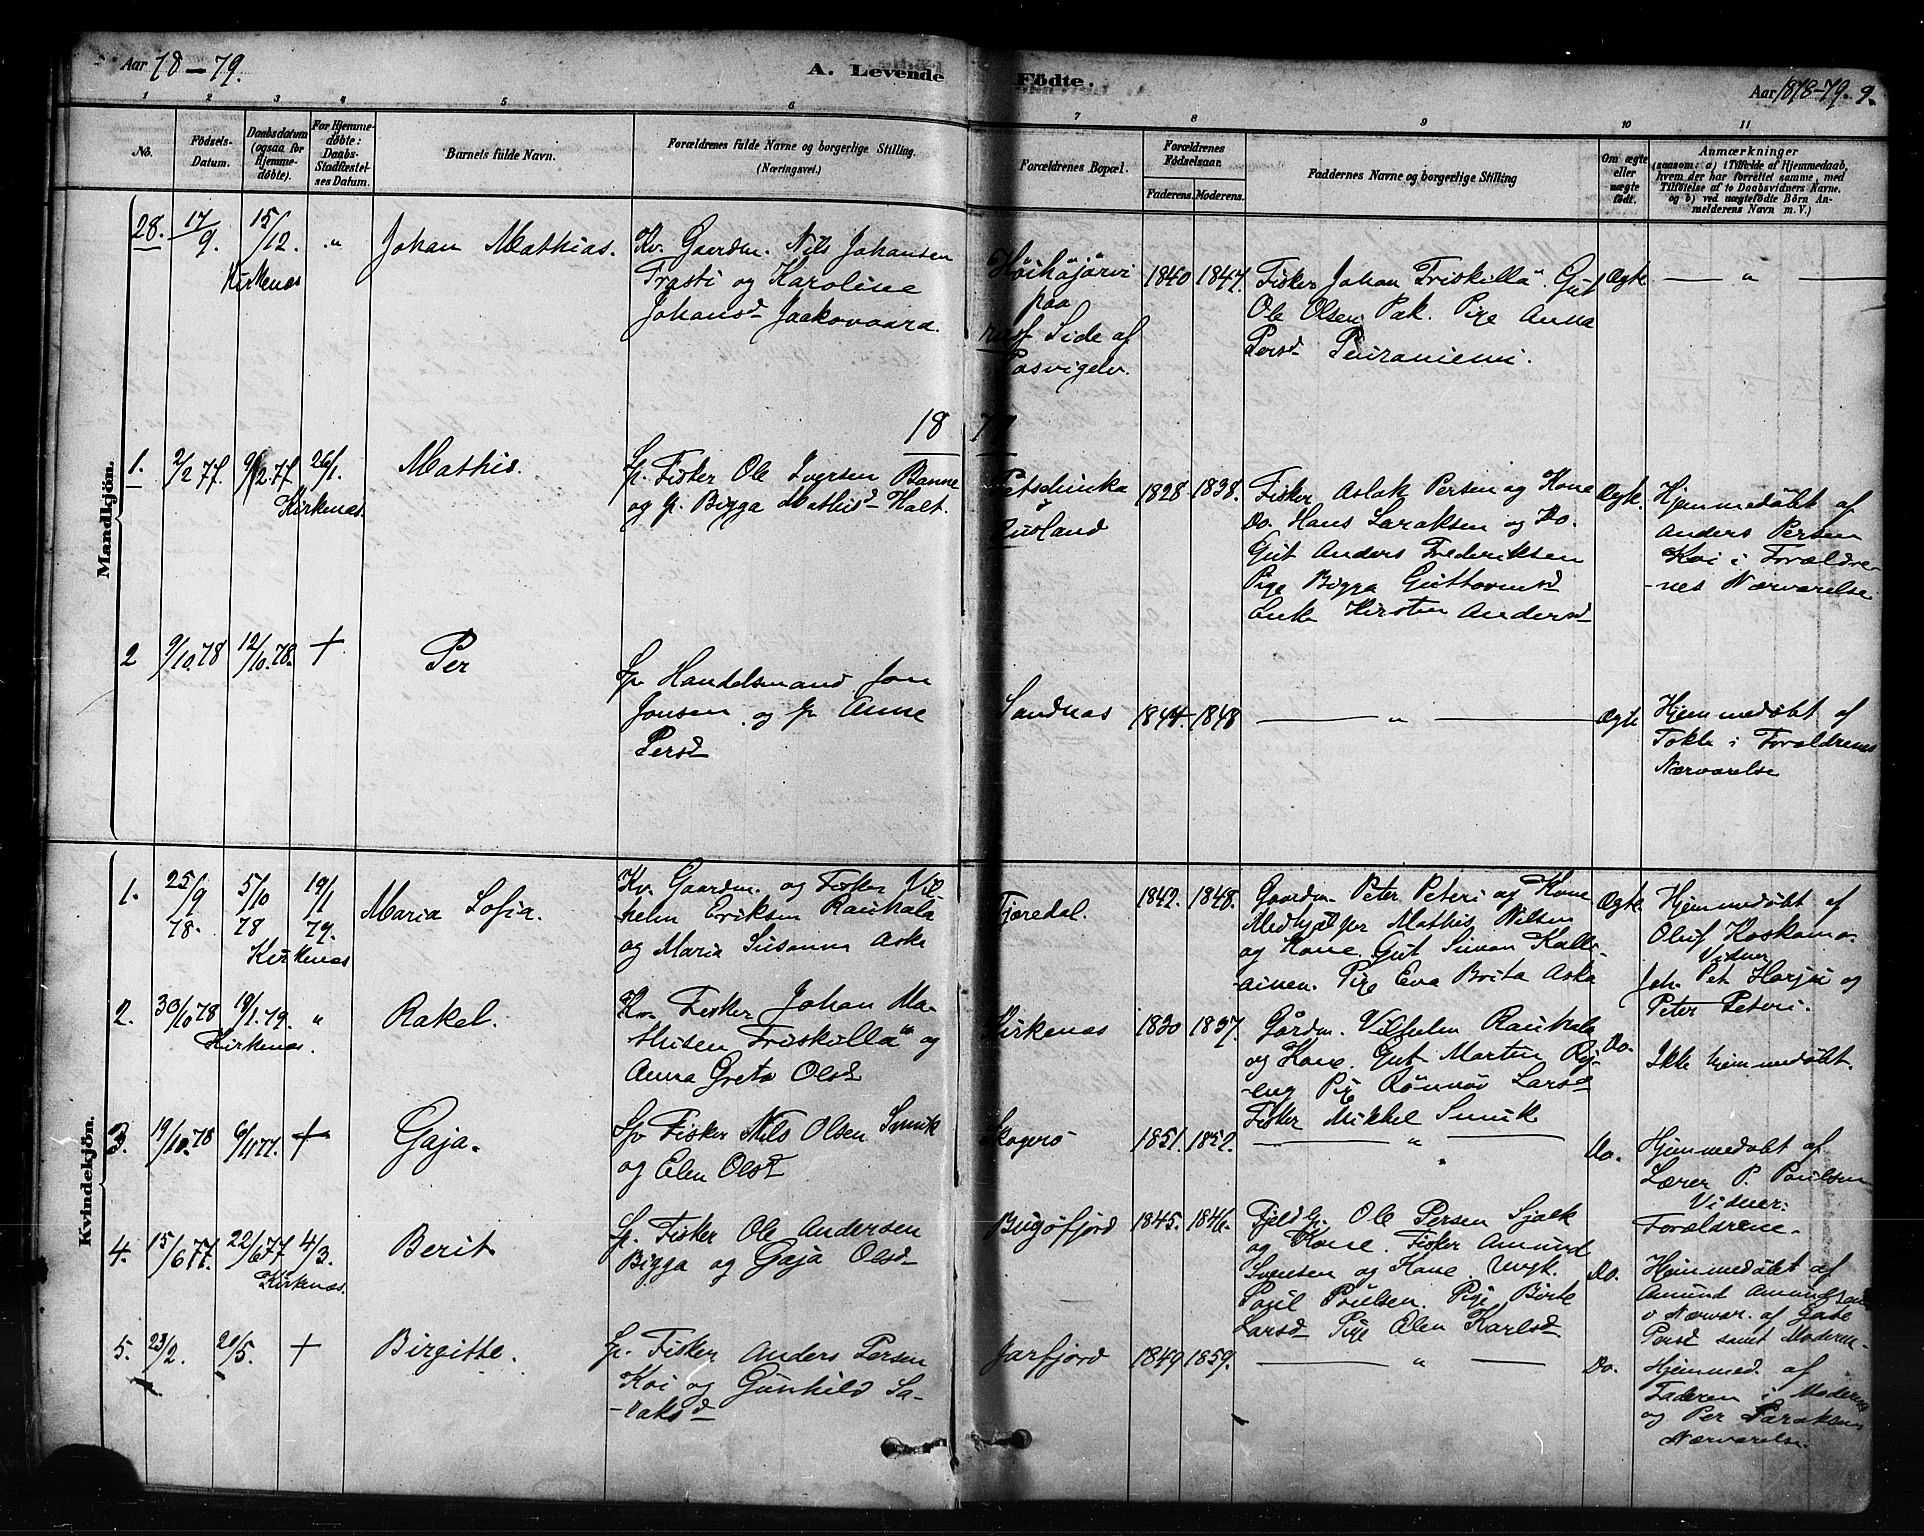 Aar 78–79.
A. Levende
Födte.
Aar 1878–79. 9.
1 2 3 4 5 6 7 8 9 10 11
No.
Födsels-
Datum.
Daabsdatum
(ogsaa for
Hjemme-
döbte).
For Hjemme-
döbte:
Daabs-
Stadfæstel-
ses Datum.
Barnets fulde Navn.
Forældrenes fulde Navne og borgerlige Stilling.
(Næringsvei.)
Forældrenes Bopæl.
Forældrenes
Födselsaar.
Faderens. Moderens.
Faddernes Navne og borgerlige Stilling
Om ægte
eller
uægte
födt.
Anmærkninger
(saasom: a) i Tilfælde af Hjemmedaab,
hvem der har forrettet samme, med
Tilföielse af to Daabsvidners Navne.
og b) ved uægtefödte Börn An-
melderens Navn m. V.)
Mandkjön.
28. 17/9. 15/12. „
Kirkenæs
Johan Mathias.
Kv. Gaardm. Nils Johansen
Trasti og Karoline
Johansd Jaakovaara.
paa
russ Side af
Pasvigelv.
1840 1847.
Fisker Johan Friskillä. Gut
Ole Olsen Pak. Pige Anna
Persd Peiraniemi.
Ægte
— „ —
18 79
1. 2/2 77. 9/2.77. 26/1.
Kirkenæs.
Mathis.
Lp. Fisker Ole Iversen Banne
og p. Bigga Mathisd Halt.
Petschinka
Rusland
1828 1838.
Fisker Aslak Persen og Kone
Do. Hans Saraksen og Do.
Gut Anders Frederiksen
Pige Bigga Guttormsd
Enke Kirsten Andersd
Ægte.
Hjemmedöbt af
Anders Persen
Koi i Forældre-
-nes Nærværelse.
2 9/10.78 12/10.78. +
Per
Lp Handelsmand Jon
Jonsen og p. Anne
Persd
Sandnæs
1844. 1848
— „ —
Ægte
Hjemmedöbt af
i Forældrenes
Nærværelse
Kvindekjön.
1. 25/9 78. 5/10 78 19/1 79.
Kirkenæs
Maria Sofia.
Kv. Gaardm. og Fisker Vil-
helm Eriksen Rauhala
og Maria Susanna Aska
Fjæredal.
1842. 1848.
Gaardm. Peter Peteri og Kone
Medhjælper Mathis Nilsen
og Kone. Gut Simon Kalli-
ainen. Pige Eva Brita Aska
Ægte
Hjemmedöbt af
Oluf Koskamo.
Vidner
Joh. Pet Harjui og
Peter Peteri.
2. 30/10 78 19/1.79. „
Kirkenæs.
Rakel.
Kv. Fisker Johan Ma-
thisen Friskillä og
Anna Greta Olsd
Kirkenæs
1830 1837.
Gårdm. Vilhelm Rauhala
og Kone. Gut Martin
Pige Rönnöv Larsd
Fisker Mikkel Smuk
Do.
Ikke hjemmedöbt.
3. 19/10.78 +
Gaja.
Lp Fisker Nils Olsen Smuk
og Elen Olsd
Skogerö
1851. 1852.
— „ —
Do.
Hjemmedöbt af
Lærer P. Paulsen
Vidner:
Forældrene.
4. 15/6 77. 22/6 77 4/3.
Kirkenæs.
Berit
Lp. Fisker Ole Andersen
Bigga og Gaja Olsd
Bugöfjord
1845. 1846.
Fjeldl. Ole Persen Sjaek
og Kone. Fisker Amund
Svensen og Kone Ungk.
Poul Poulsen. Pige Birte
Larsd Pige Elen Karlsd
Do.
Hjemmedöbt af
Amund Amundsen
i Nærvær. af
Persd samt Moderen.
5. 23/2. 20/5. +
Birgitte.
Lp. Fisker Anders Persen
Koi og Gunhild Sa-
-raksd
Jarfjord
1849 1859.
— „ —
Do.
Hjemmed. af
Faderen i Moderens
og Per Saraksens
Nærværelse.